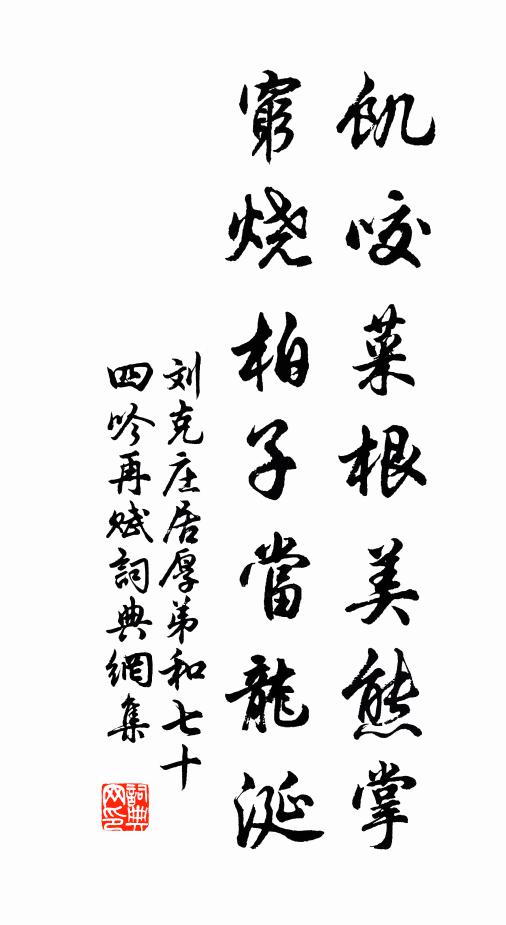 飢咬菜根美熊掌
窮烧柏子當龍涎
刘克庄居厚弟和七十
四吟再赋詞典網集
詞典网印